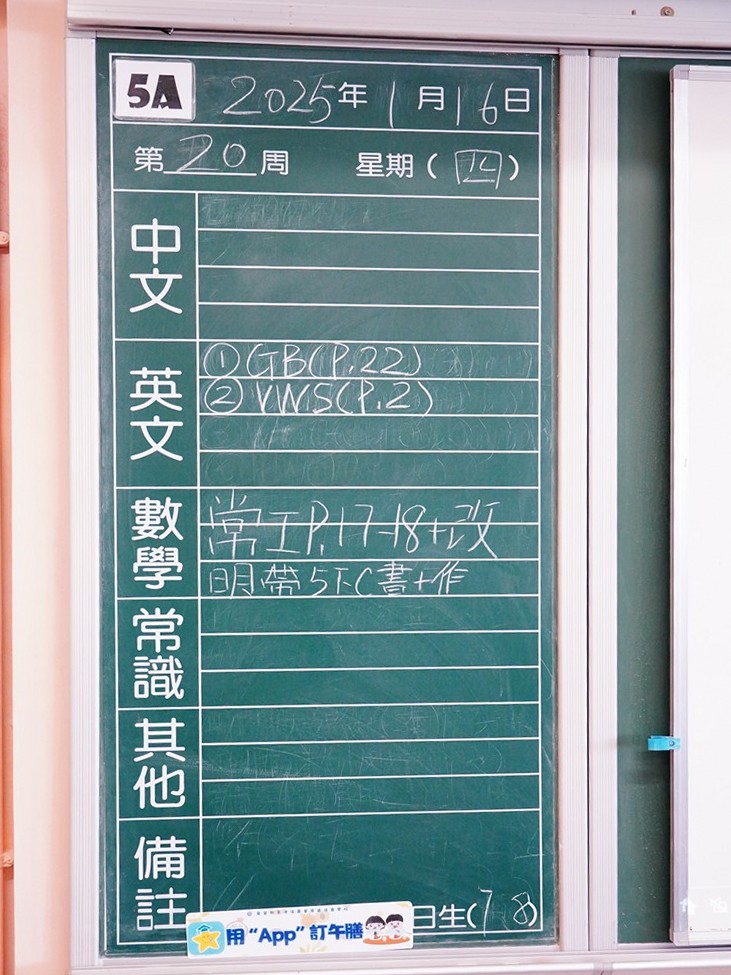 5A 2025年1月16日
第20周 星期(四)
中文
英文
①GB(P.22)
②VWS(P.2)
數學
常工P.17-18+改
明帶5下C書+作
常識
其他
備註
日生(7 8)
用“App”訂午膳